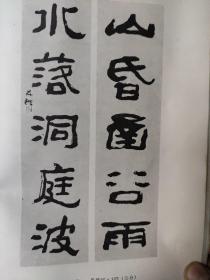 山昏函谷雨
水落洞庭波